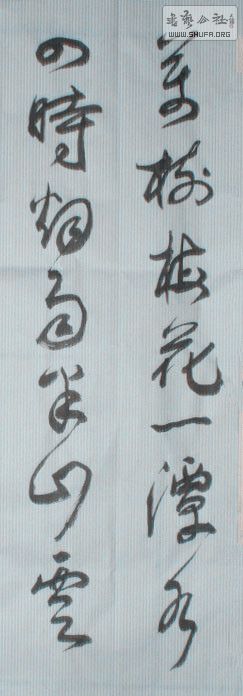 萬樹梅花一潭水
四時烟雨半山雲
書藝公社
WWW.SHUFA.ORG